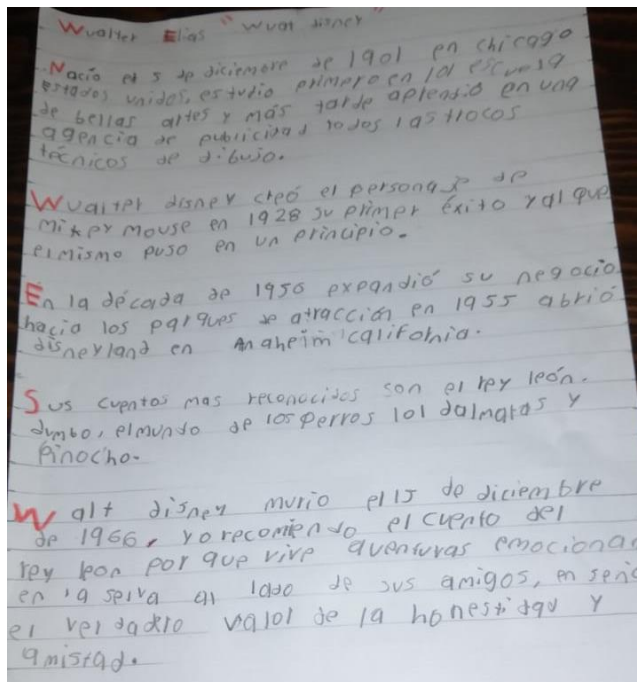 Wualter Elias "Wualt disney"
Nacio el 5 de diciembre de 1901 en chicago
estados unidos, estudio primero en la escuela
de bellas artes y más tarde aprendio en una
agencia de publicidad todos las trocos
técnicos de dibujo.
Wualter disney creó el personaje de
Mikey mouse en 1928 su primer éxito y al que
el mismo puso en un principio.
En la década de 1950 expandió su negocio
hacia los parques de atracción en 1955 abrió
disneyland en Anaheim california.
Sus cuentos mas reconocidos son el rey león.
dumbo, el mundo de los perros 101 dalmatas y
Pinocho.
Walt disney murio el 15 de diciembre
de 1966, yo recomiendo el cuento del
rey leon por que vive aventuras emociona
en la selva al lado de sus amigos, en seña
el verdadero valor de la honestidad y
amistad.